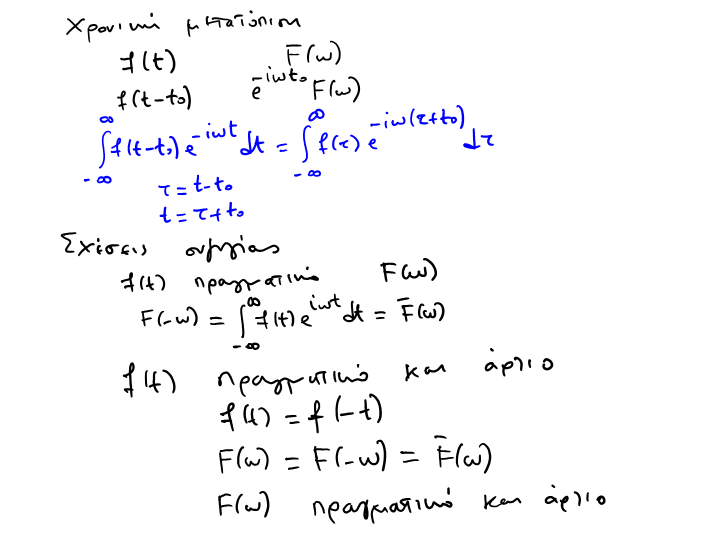 Χρονική μετατόπιση
f(t) F(ω)
f(t-t₀) e^{-iωt₀} F(ω)
∫_{-∞}^{∞} f(t-t₀) e^{-iωt} dt = ∫_{-∞}^{∞} f(τ) e^{-iω(τ+t₀)} dτ
τ = t-t₀
t = τ+t₀
Σχέσεις συζυγίας
f(t) πραγματική F(ω)
F(-ω) = ∫_{-∞}^{∞} f(t) e^{iωt} dt = F̄(ω)
f(t) πραγματικό και άρτιο
f(t) = f(-t)
F(ω) = F(-ω) = F̄(ω)
F(ω) πραγματικό και άρτιο